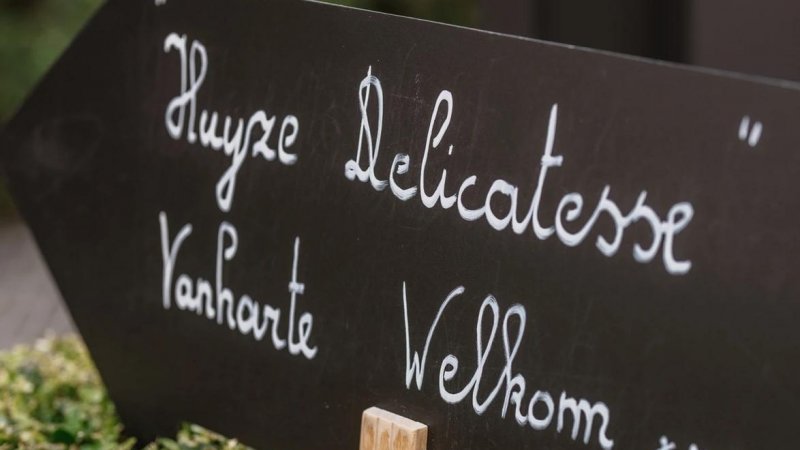 "Huyze Delicatesse"
Vanharte Welkom